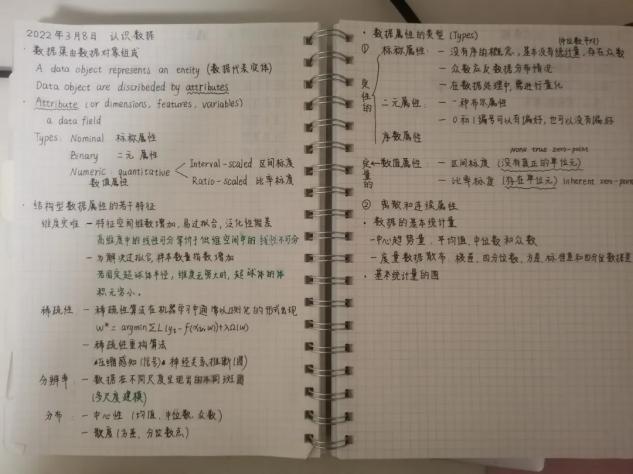 2022年3月8日 认识数据
· 数据集由数据对象组成
A data object represents an entity (数据代表实体)
Data object are discribeded by attributes
· Attribute (or dimensions, features, variables)
a data field
Types: Nominal 标称属性
Binary 二元属性
Numeric: quantitative
数值属性
Interval-scaled 区间标度
Ratio-scaled 比率标度
· 结构型数据属性的若干特征
维度灾难 - 特征空间维数增加，易过拟合，泛化性能差
高维度中的线性可分等价于低维空间中的线性不可分
- 为解决过拟合，样本数量指数增加
若固定超球体半径，维度无穷大时，超球体的体
积无穷小。
稀疏性 - 稀疏性算法在机器学习中通常以正则化的形式出现
w* = argmin∑L(yi - f(xi,w))+λΩ(w)
- 稀疏性重构算法
压缩感知(信号) 神经关系推断(图)
分辨率 - 数据在不同尺度呈现出不同斑图
(多尺度建模)
分布 - 中心性 (均值、中位数、众数)
- 散度 (方差、分位数点)
· 数据属性的类型 (Types)
(中位数 平均)
① 标称属性 - 没有序的概念，基本没有统计量，存在众数
- 众数在反数据分布情况
- 在数据处理中，需进行量化
定性的
二元属性 - 一种布尔属性
- 0和1编号可以有偏好，也可以没有偏好
序数属性
none true zero-point
定量的 数值属性 - 区间标度 (没有真正的单位元)
- 比率标度 (存在单位元) inherent zero-point
② 离散和连续属性
· 数据的基本统计量
- 中心趋势量：平均值、中位数和众数
- 度量数据散布：极差、四分位数、方差、标准差和四分位数据差
· 基本统计量的图